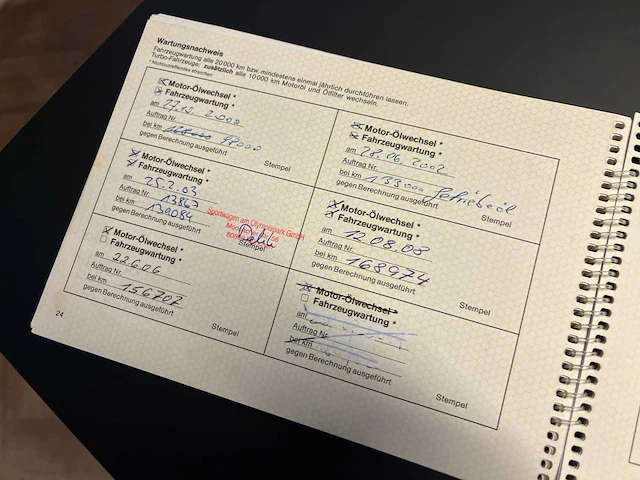 Wartungsnachweis
Fahrzeugwartung alle 20 000 km bzw. mindestens einmal jährlich durchführen lassen.
Turbo-Fahrzeuge: zusätzlich alle 10 000 km Motoröl und Ölfilter wechseln.
* Nichtzutreffendes streichen
Motor-Ölwechsel *
Fahrzeugwartung *
am 27.12.2000
Auftrag Nr.
bei km 98000
gegen Berechnung ausgeführt
Stempel
Motor-Ölwechsel *
Fahrzeugwartung *
am 28.06.2002
Auftrag Nr.
bei km 133000
gegen Berechnung ausgeführt
Stempel
Motor-Ölwechsel *
Fahrzeugwartung *
am 25.2.03
Auftrag Nr. 13867
bei km 134084
gegen Berechnung ausgeführt
Sportwagen am Olympiapark GmbH
Stempel
Motor-Ölwechsel *
Fahrzeugwartung *
am 12.08.08
Auftrag Nr.
bei km 168974
gegen Berechnung ausgeführt
Stempel
Motor-Ölwechsel *
Fahrzeugwartung *
am 22.6.06
Auftrag Nr.
bei km 156702
gegen Berechnung ausgeführt
Stempel
Motor-Ölwechsel *
Fahrzeugwartung *
am
Auftrag Nr.
bei km
gegen Berechnung ausgeführt
Stempel
24